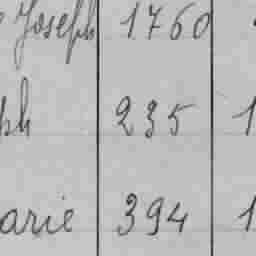 Joseph 1760
ph 235 1
arie 394 1